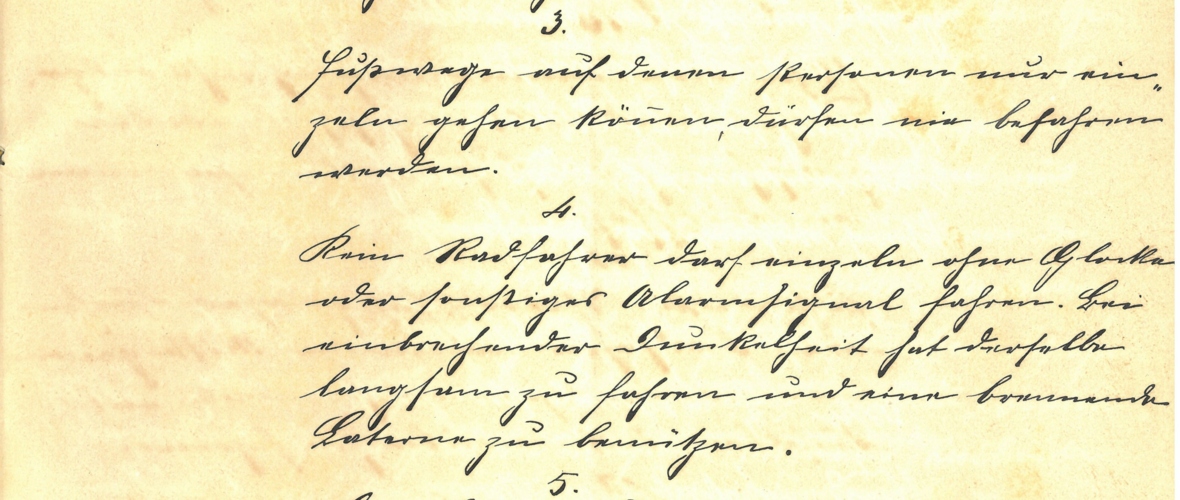 3.
Fußwege auf denen Personen nur ein„
zeln gehen können, dürfen nie befahren
werden.
4.
Kein Radfahrer darf einzeln ohne Glocke
oder sonstiges Alarmsignal fahren. Bei
einbrechender Dunkelheit hat derselbe
langsam zu fahren und eine brennende
Laterne zu benützen.
5.